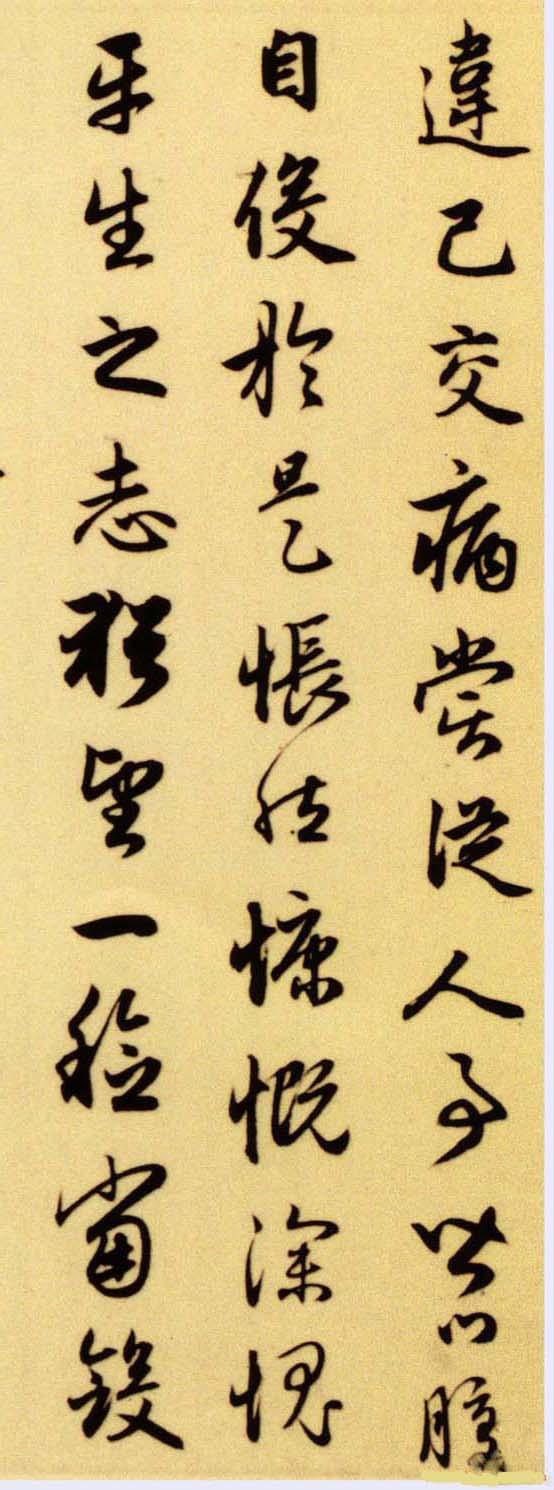 違己交病嘗從人事皆口腹
自役於是悵然慷慨深愧
平生之志猶望一稔當斂